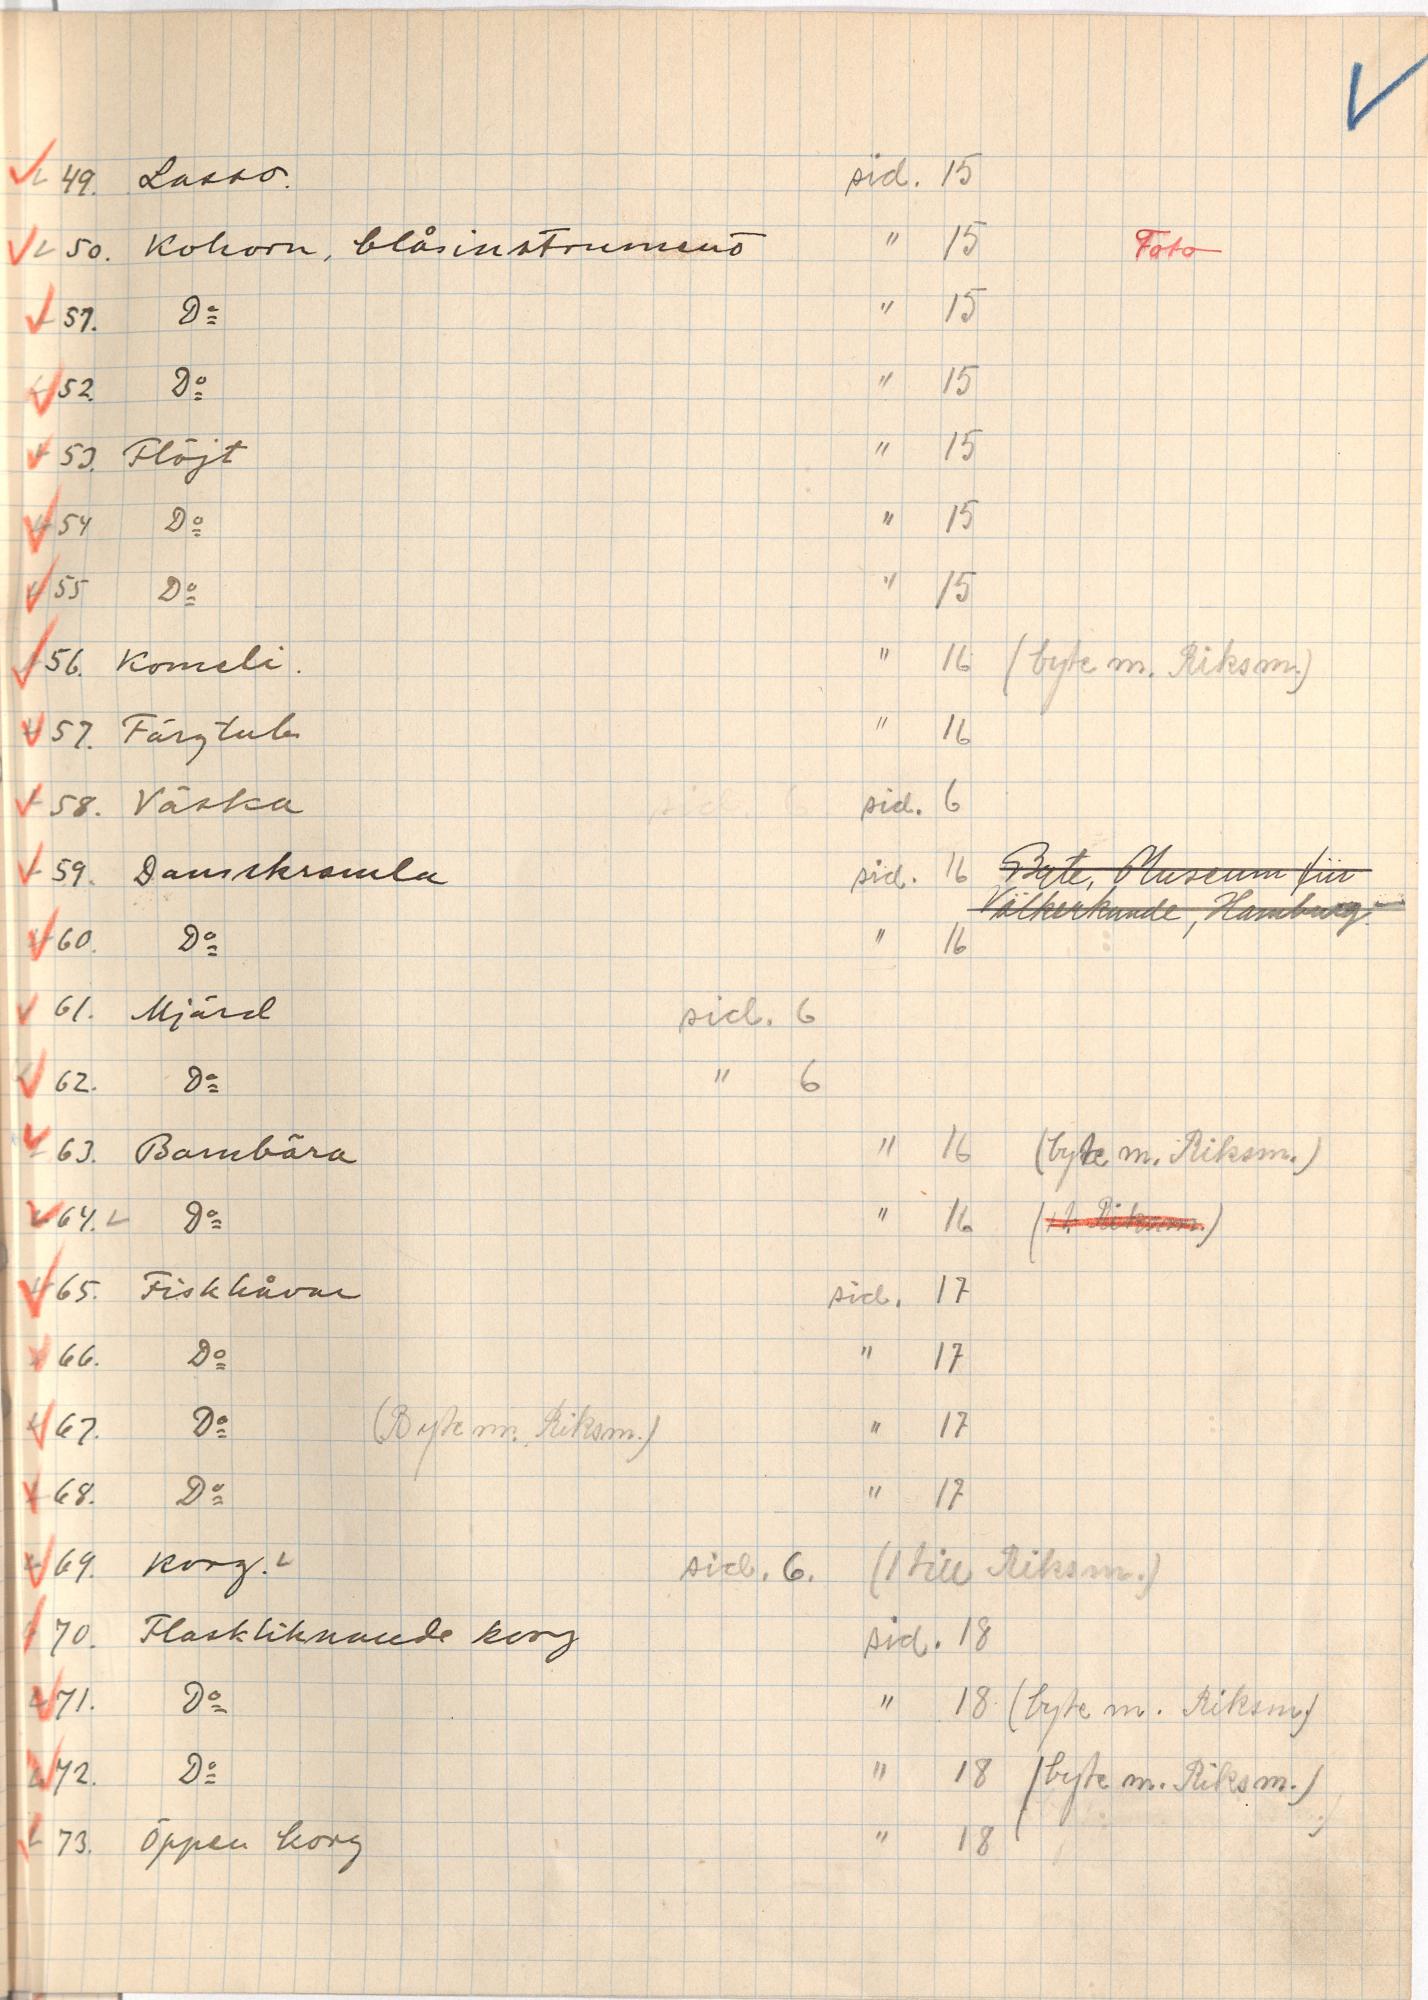 49. Lasso. sid. 15
50. Kohorn, blåsinstrument " 15 Foto
51. Do " 15
52. Do " 15
53. Flöjt " 15
54 Do " 15
55 Do " 15
56. Komeli. " 16 (byte m. Riksm.)
57. Färgtub " 16
58. Väska sid. 6
59. Dansskramla sid. 16 Byte, Museum für
Völkerkunde, Hamburg.
60. Do " 16
61. Mjärd sid. 6
62. Do " 6
63. Barnbära " 16 (byte m. Riksm.)
64. Do " 16 ( Riksm.)
65. Fiskhåvar sid. 17
66. Do " 17
67. Do (Byte m. Riksm.) " 17
68. Do " 17
69. Korg. sid. 6. (1 till Riksm.)
70. Flaskliknande korg sid. 18
71. Do " 18 (byte m. Riksm)
72. Do " 18 (byte m. Riksm.)
73. Öppen korg " 18